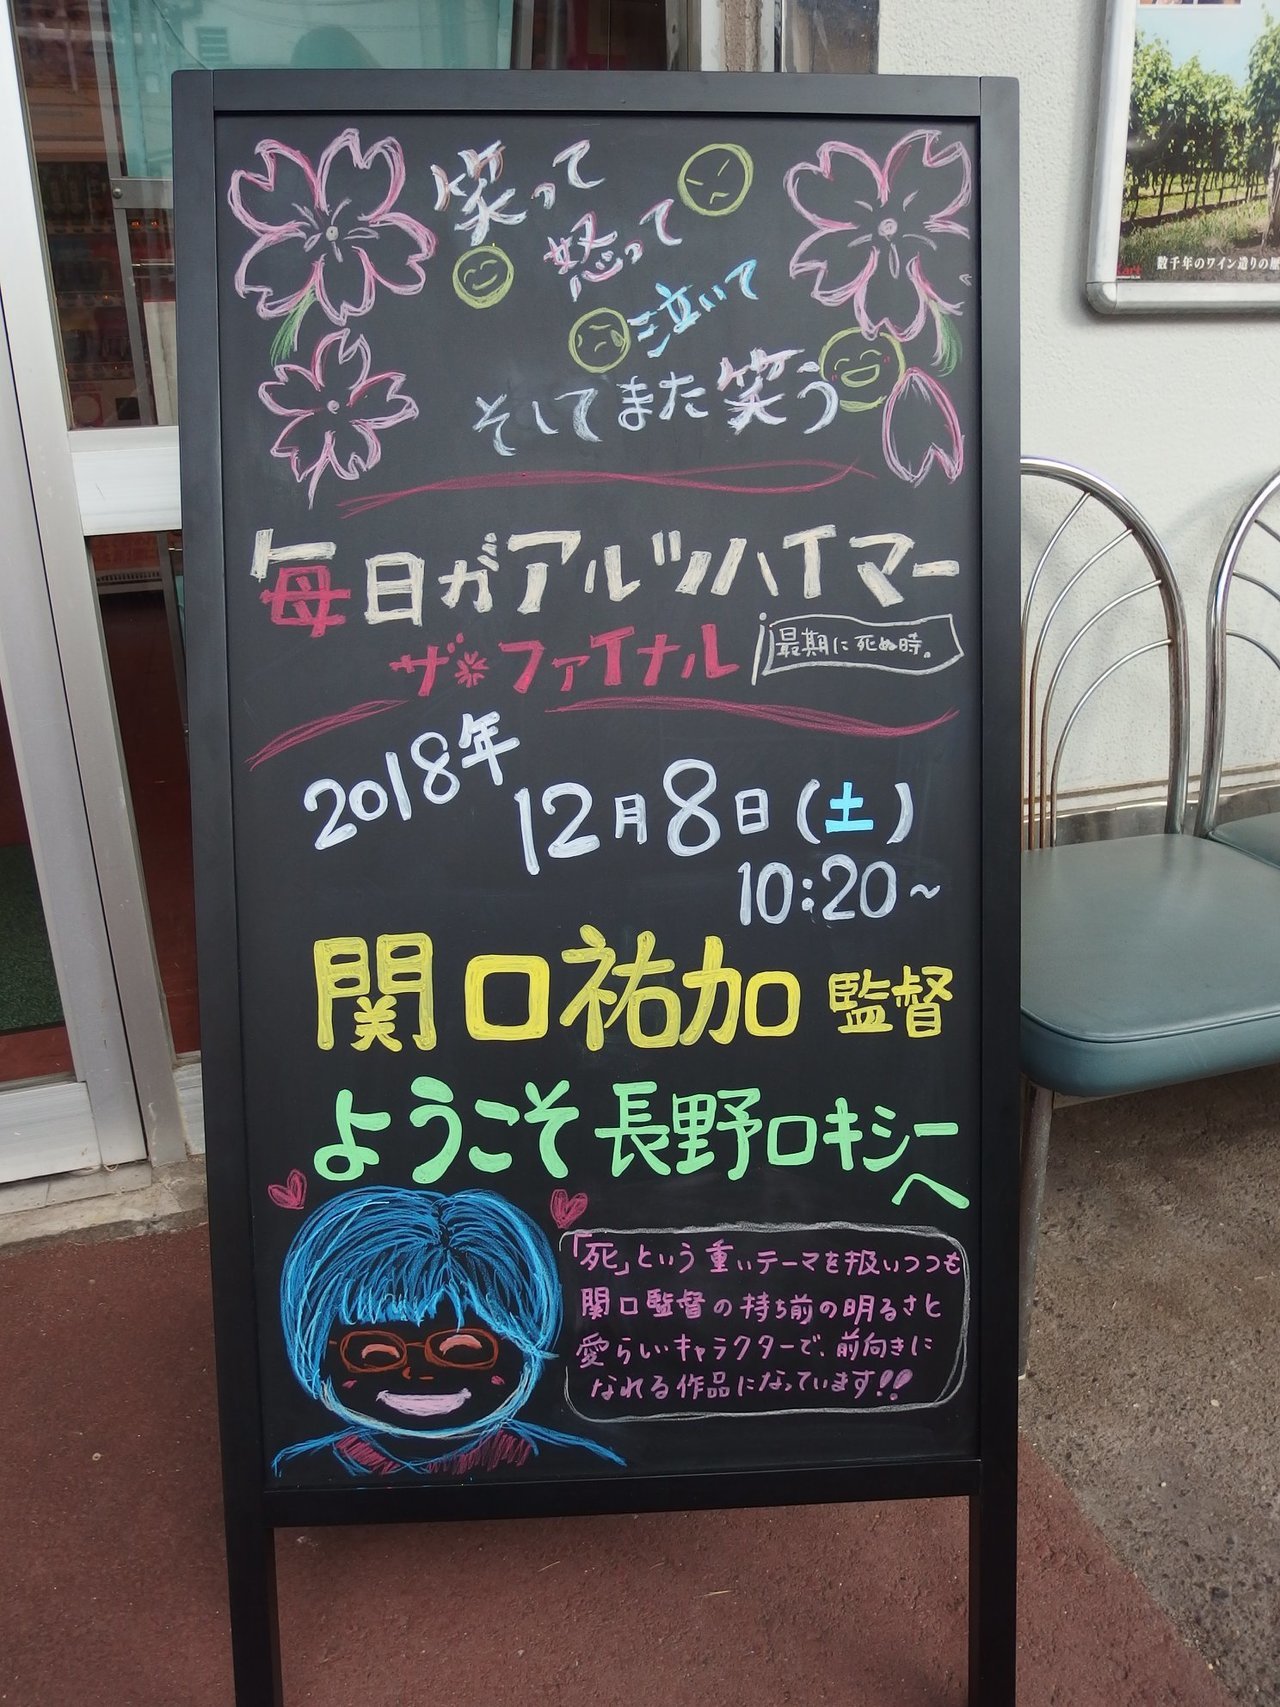 笑って
怒って
泣いて
そしてまた笑う
毎日がアルツハイマー
ザ・ファイナル
最期に死ぬ時。
2018年
12月8日(土)
10:20~
関口祐加 監督
ようこそ 長野ロキシーへ
「死」という重いテーマを扱いつつも
関口監督の持ち前の明るさと
愛らしいキャラクターで、前向きに
なれる作品になっています!!
数千年のワイン造りの歴